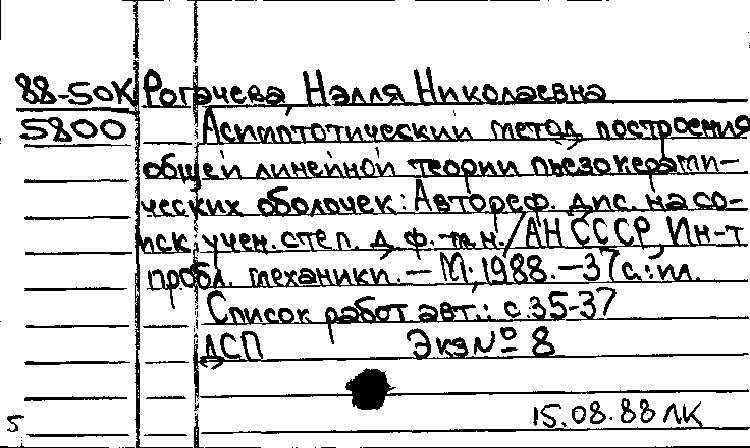 88-50К Рогачева, Нэлля Николаевна
5800 Асимптотический метод построения
общей линейной теории пьезокерами-
ческих оболочек: Автореф. дис. на со-
иск. учен. степ. д. ф.-м.н./АН СССР, Ин-т
пробл. механики. — М., 1988. — 37с.: ил.
Список работ авт.: с.35-37
ДСП Экз № 8
15.08.88 ЛК
5